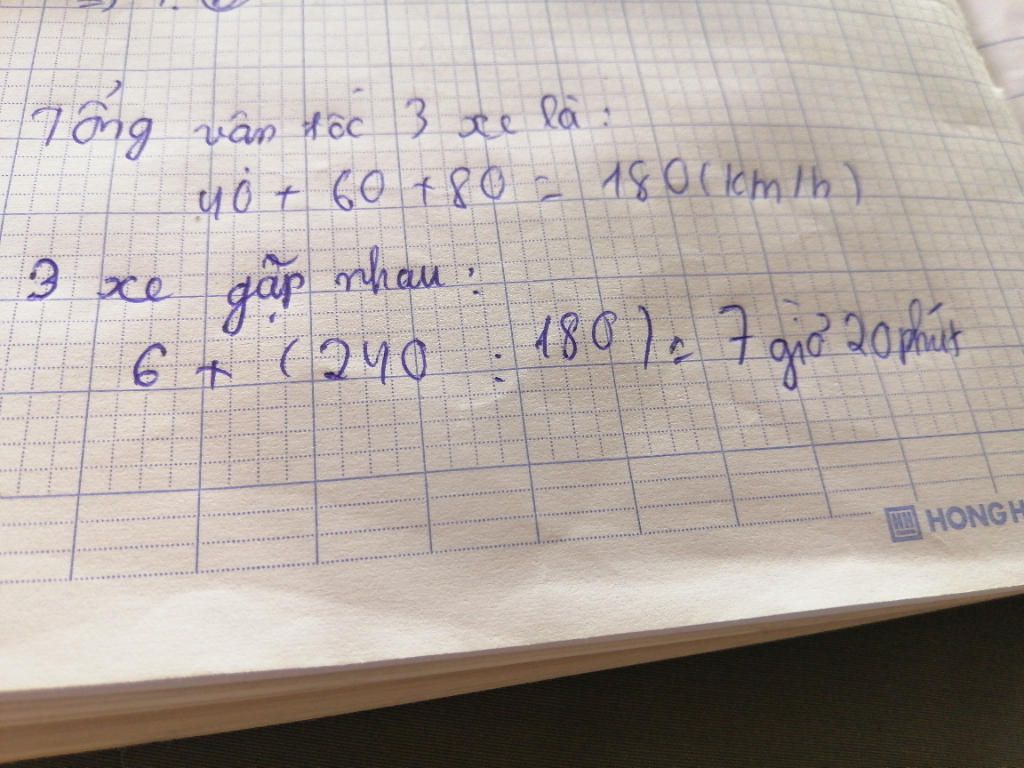 Tổng vân tốc 3 xe là:
40 + 60 + 80 = 180 (km/h)
3 xe gặp nhau:
6 + (240 : 180) = 7 giờ 20 phút
HONG H